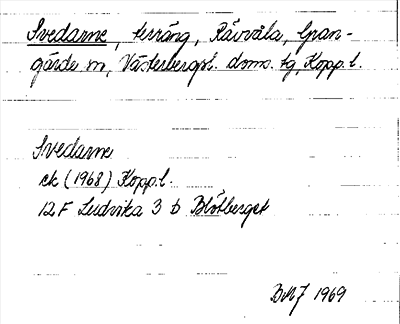 Svedarne, terräng, Rävvåla, Gran-
gärde sn, Västerbergsl. doms. tg, Kopp. l.
Svedarne
ek (1968) Kopp. l.
12F Ludvika 3 b Blötberget
1969